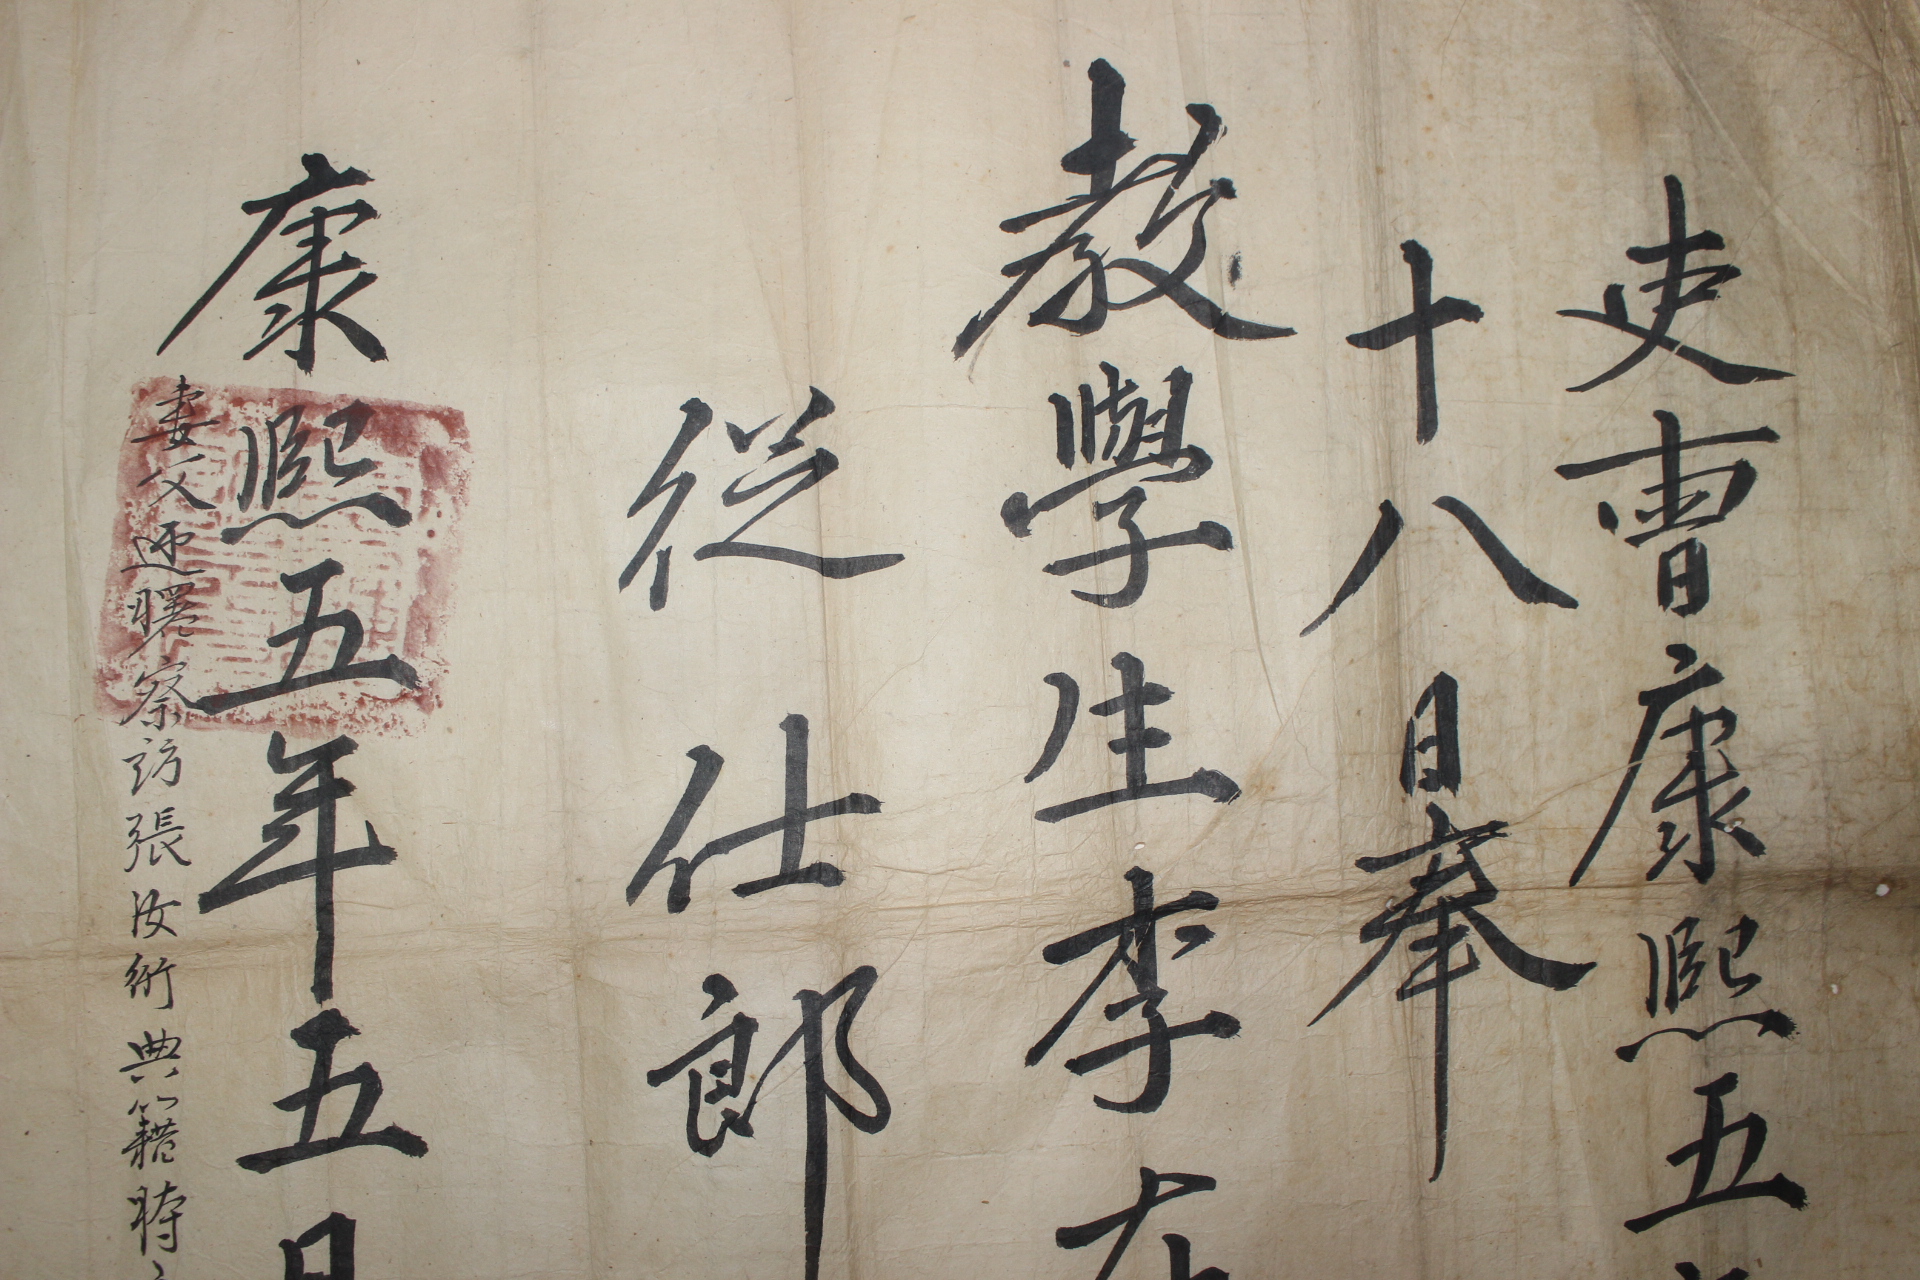 吏曺康熙五
十八日奉
教學生李
從仕郎
康熙五年五月
妻父 察訪張汝衎典籍時